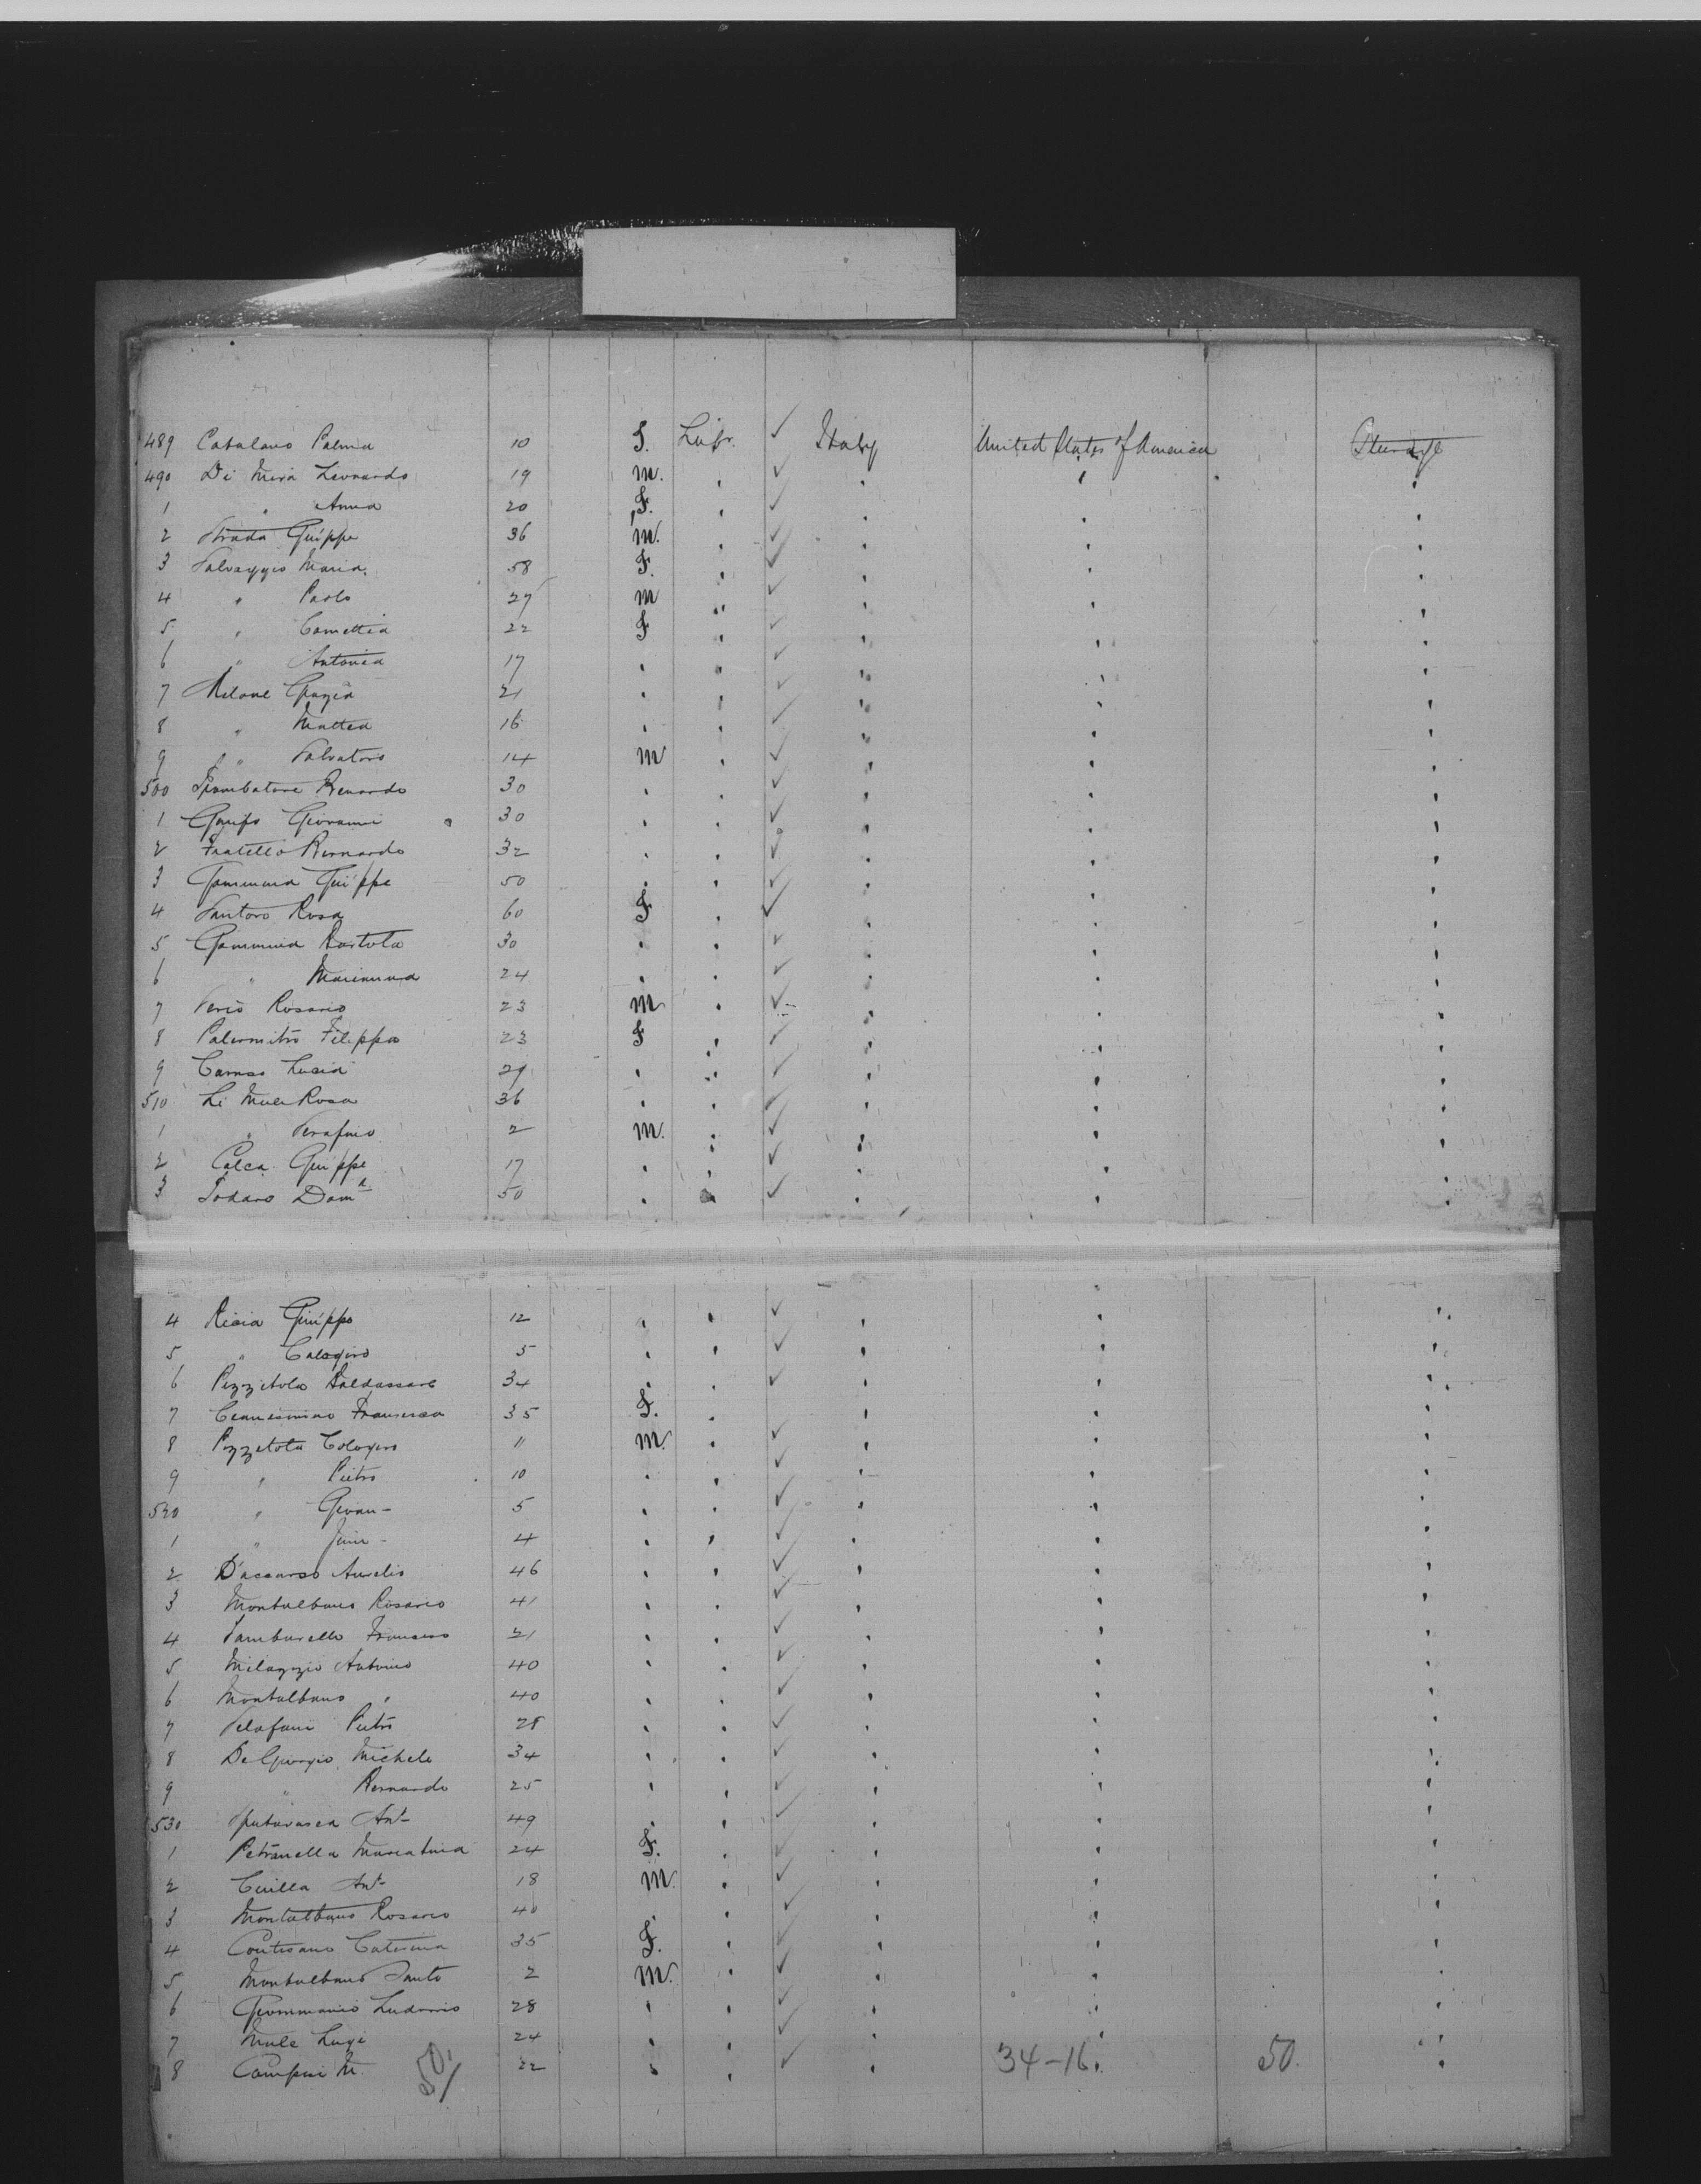 489 Catalano Palma 10 F. Labr. ✓ Italy United States of America Steerage
490 Di Miria Leonardo 19 m. " ✓ " " "
1 " Anna 20 F. " ✓ " " "
2 Strada Guippe 36 m. " ✓ " " "
3 Salvaggio Maria 58 F. " ✓ " " "
4 " Paolo 27 m " ✓ " " "
5 " 22 F " ✓ " " "
6 " Antonia 17 " " ✓ " " "
7 Milone Grazia 21 " " ✓ " " "
8 " Mattea 16 " " ✓ " " "
9 " Salvatore 14 m " ✓ " " "
500 30 " " ✓ " " "
1 Giovanni 30 " " ✓ " " "
2 Fratello Bernardo 32 " " ✓ " " "
3 Guippe 50 " " ✓ " " "
4 Santoro Rosa 60 F " ✓ " " "
5 30 " " ✓ " " "
6 " Marianna 24 " " ✓ " " "
7 Rosario 23 m " ✓ " " "
8 Palermitro Filippa 23 F " ✓ " " "
9 Caruso Lucia 29 " " ✓ " " "
510 Li Muli Rosa 36 " " ✓ " " "
1 " Serafino 2 m. " ✓ " " "
2 Calca Guippe 17 " " ✓ " " "
3 Todaro Dom 50 " " ✓ " " "
4 Guippe 12 " " ✓ " " "
5 " Calogero 5 " " ✓ " " "
6 Pizzitola Baldassare 34 " " ✓ " " "
7 Francesca 35 F. " " " "
8 Pizzitola Calogero 11 m. " ✓ " " "
9 " Pietro 10 " " ✓ " " "
520 " Giovan- 5 " " ✓ " " "
1 " 4 " " ✓ " " "
2 D'accurso Aurelio 46 " " ✓ " " "
3 Montalbano Rosario 41 " " ✓ " " "
4 Tamburello Francesco 21 " " ✓ " " "
5 Milazzio Antonio 40 " " ✓ " " "
6 Montalbano " 40 " " ✓ " " "
7 Pietro 28 " " ✓ " " "
8 De Giorgio Michele 34 " " ✓ " " "
9 " Bernardo 25 " " ✓ " " "
530 Ant- 49 " " ✓ " " "
1 Petranella 24 F. " ✓ " " "
2 Ant- 18 m. " ✓ " " "
3 Montalbano Rosario 40 " " ✓ " " "
4 Caterina 35 F. " ✓ " " "
5 Montalbano Santo 2 m. " ✓ " " "
6 28 " " ✓ " " "
7 Mule Luigi 24 " " ✓ " " "
8 M. 50/ 22 " " ✓ " 34-16. 50. "